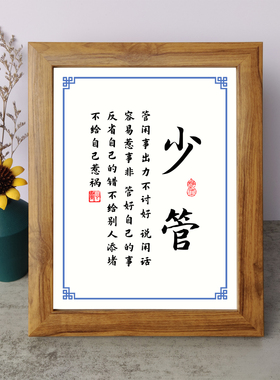 少管
管闲事出力不讨好 说闲话
容易惹事非 管好自己的事
反省自己的错不给别人添堵
不给自己惹祸